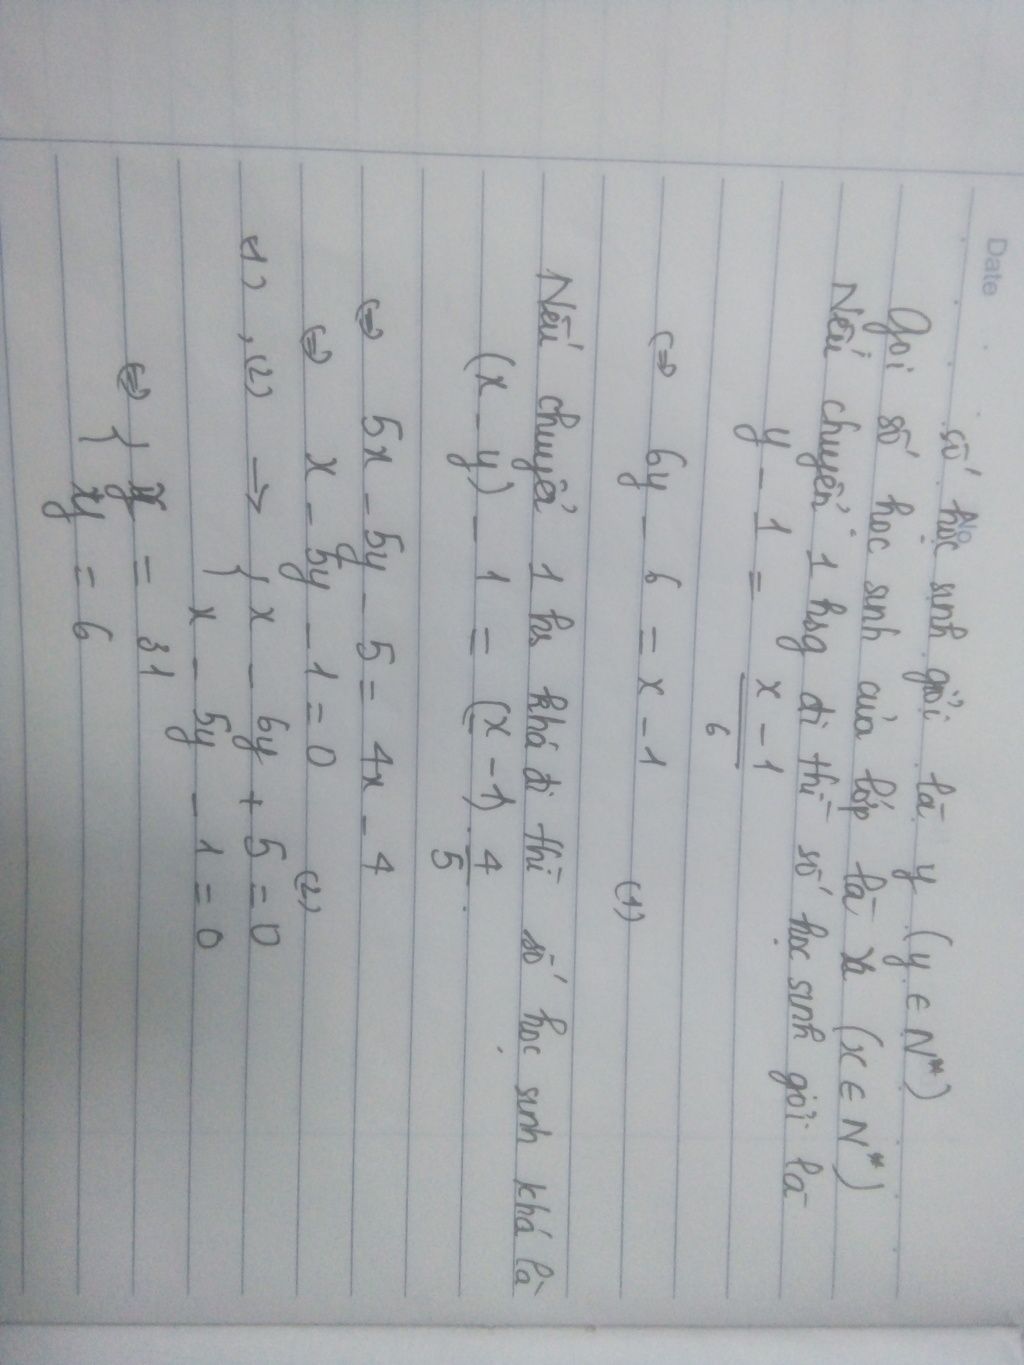 Date
No
số học sinh giỏi là y (y ∈ N*)
Gọi số học sinh của lớp là x (x ∈ N*)
Nếu chuyển 1 hsg đi thì số học sinh giỏi là
y - 1 = x - 1 / 6
(=) 6y - 6 = x - 1 (1)
Nếu chuyển 1 hs khá đi thì số học sinh khá là
(x - y) - 1 = (x - 1) . 4/5
(=) 5x - 5y - 5 = 4x - 4
(=) x - 5y - 1 = 0 (2)
(1), (2) → { x - 6y + 5 = 0
x - 5y - 1 = 0
(=) { x = 31
y = 6